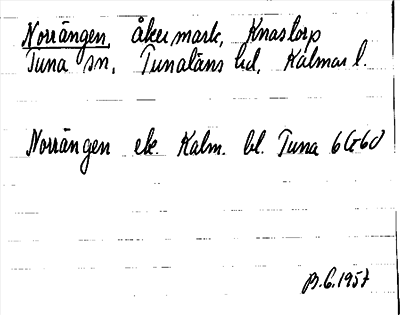 Norrängen, åkermark, Knastorp
Tuna sn, Tunaläns hd, Kalmar l.
Norrängen ek. Kalm. bl. Tuna 6G6d
B.G.1957